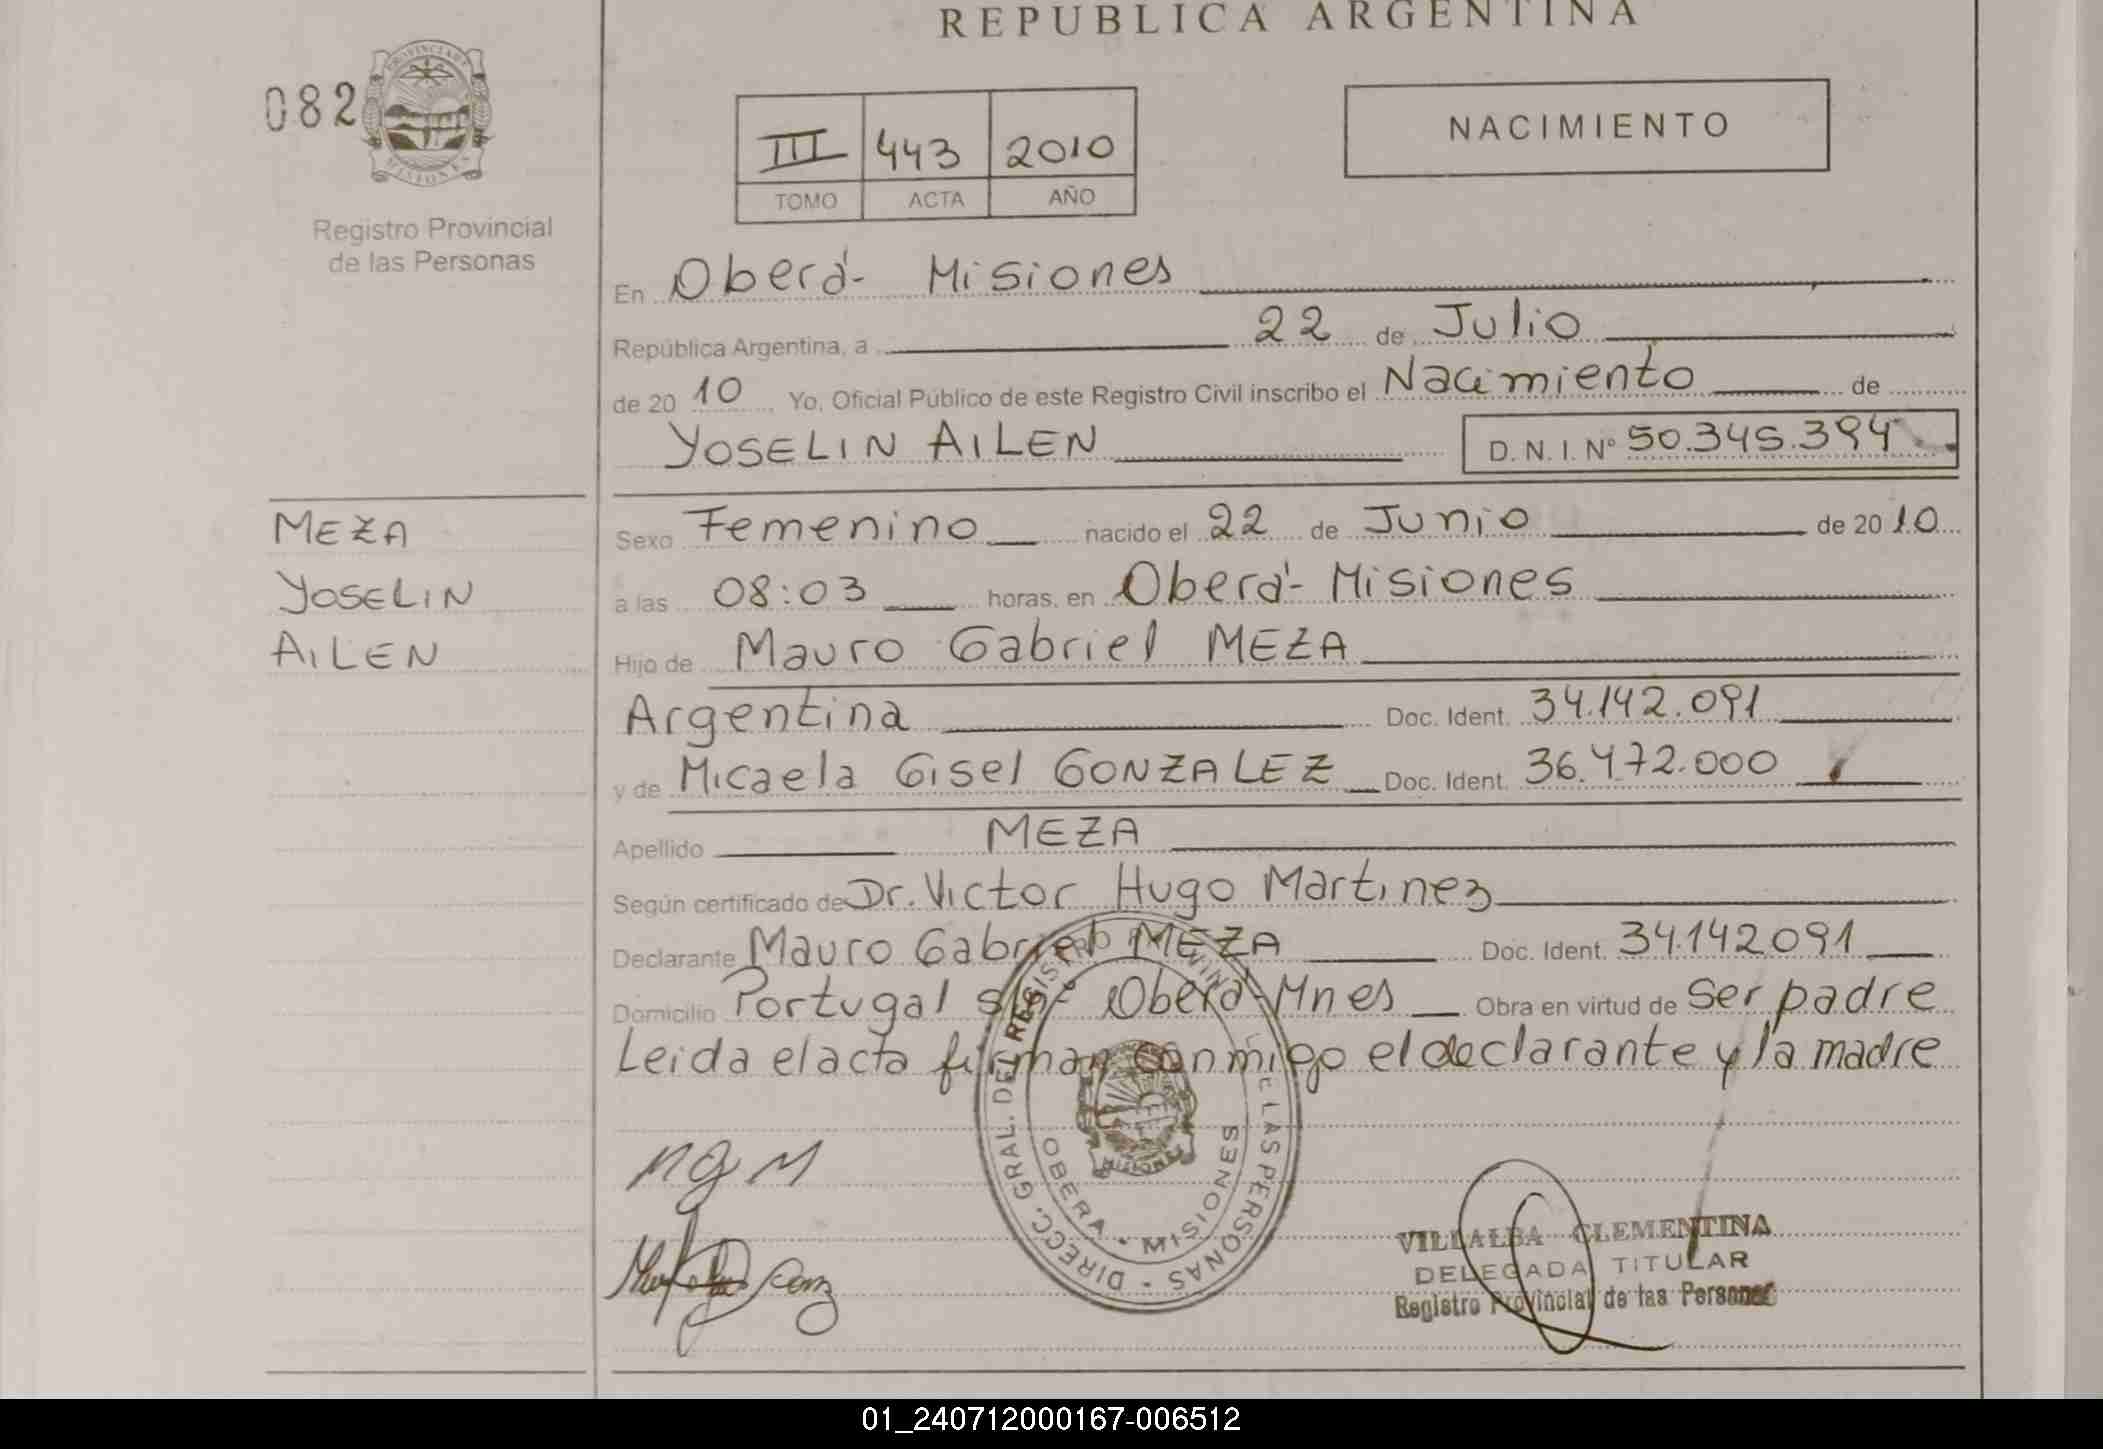 REPUBLICA ARGENTINA
082
PROVINCIA DE MISIONES
Registro Provincial
de las Personas
III 443 2010
TOMO ACTA AÑO
NACIMIENTO
En Oberá - Misiones
República Argentina, a 22 de Julio
de 2010 Yo, Oficial Público de este Registro Civil inscribo el Nacimiento de
YOSELIN AILEN D. N. I. Nº 50.345.394
MEZA
YOSELIN
AILEN
Sexo Femenino nacido el 22 de Junio de 2010
a las 08:03 horas, en Oberá - Misiones
Hijo de Mauro Gabriel MEZA
Argentina Doc. Ident. 34.142.091
y de Micaela Gisel GONZALEZ Doc. Ident. 36.472.000
Apellido MEZA
Según certificado de Dr. Victor Hugo Martinez
Declarante Mauro Gabriel MEZA Doc. Ident. 34.142091
Domicilio Portugal Oberá - Mnes Obra en virtud de Ser padre
Leida el acta firman conmigo el declarante y la madre
DIRECC. GRAL. DEL REGISTRO DE LAS PERSONAS
OBERA • MISIONES
MISIONES
MGM
VILLALBA CLEMENTINA
DELEGADA TITULAR
Registro Provincial de las Personas
01_240712000167-006512